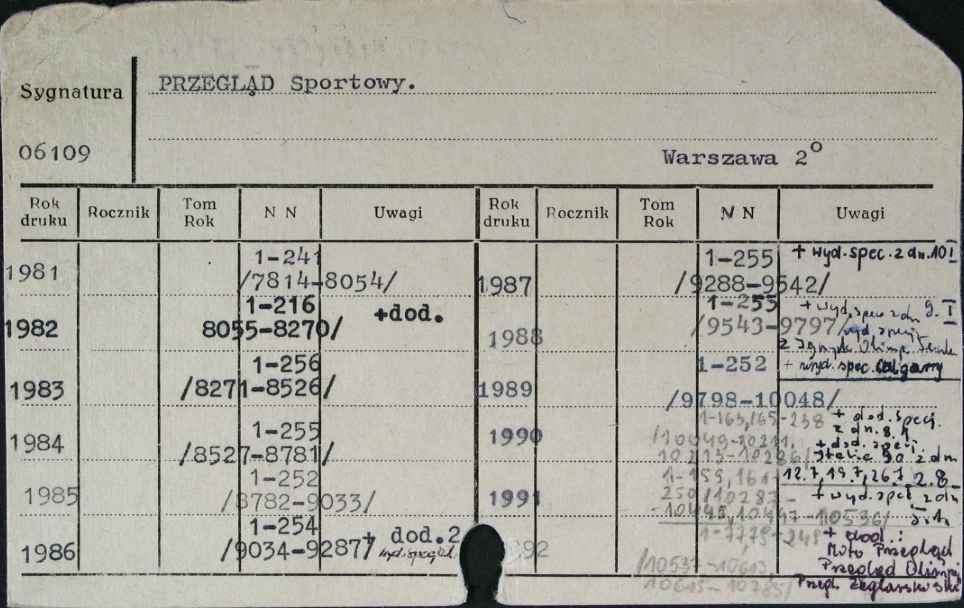 Sygnatura
PRZEGLĄD Sportowy.
06109
Warszawa 2°
Rok druku Rocznik Tom Rok N N Uwagi Rok druku Rocznik Tom Rok N N Uwagi
1981 1-241 /7814-8054/
1982 1-216 8055-8270/ +dod.
1983 1-256 /8271-8526/
1984 1-255 /8527-8781/
1985 1-252 /8782-9033/
1986 1-254 /9034-9287/ + dod.2
1987 1-255 /9288-9542/ + wyd.spec.z dn.10 I
1988 1-255 /9543-9797/ + wyd.spec z dn 9. I
+ wyd.spec.Calgary
1989 1-252 /9798-10048/
1990 1-163,165-238 /10049-10211, 10213-10286/ + dod.specj. z dn.8.
+ dod.specj. Italia 90 z dn 12.7, 19.7, 26.7, 2.8
1991 1-159,161-250 /10287-10445,10447-10536/ + wyd.spec z dn 5.1.
1-77,79-249 /10537-10613, 10615-10785/ + dod.:
Moto Przegląd
Przegląd Olimpij
Przegl. Żeglarski